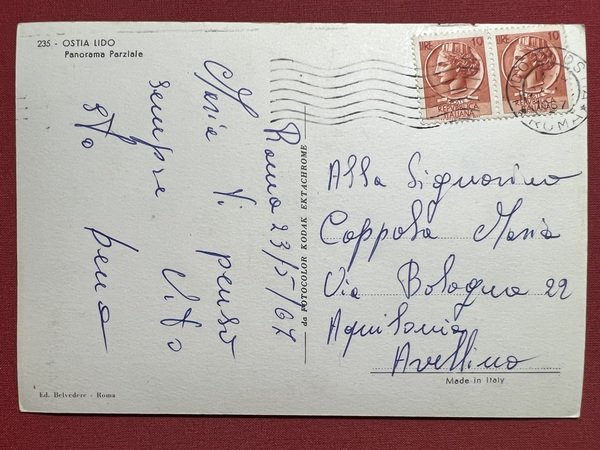 235 - OSTIA LIDO
Panorama Parziale
LIRE 10
REPUBBLICA
ITALIANA
LIRE 10
1967
ROMA
Roma 23/5/67
Maria Ti penso
sempre Vito
sto bene
da FOTOCOLOR KODAK EKTACHROME
Alla Signorina
Coppola Maria
Via Bologna 22
Aquilonia
Avellino
Made in Italy
Ed. Belvedere - Roma